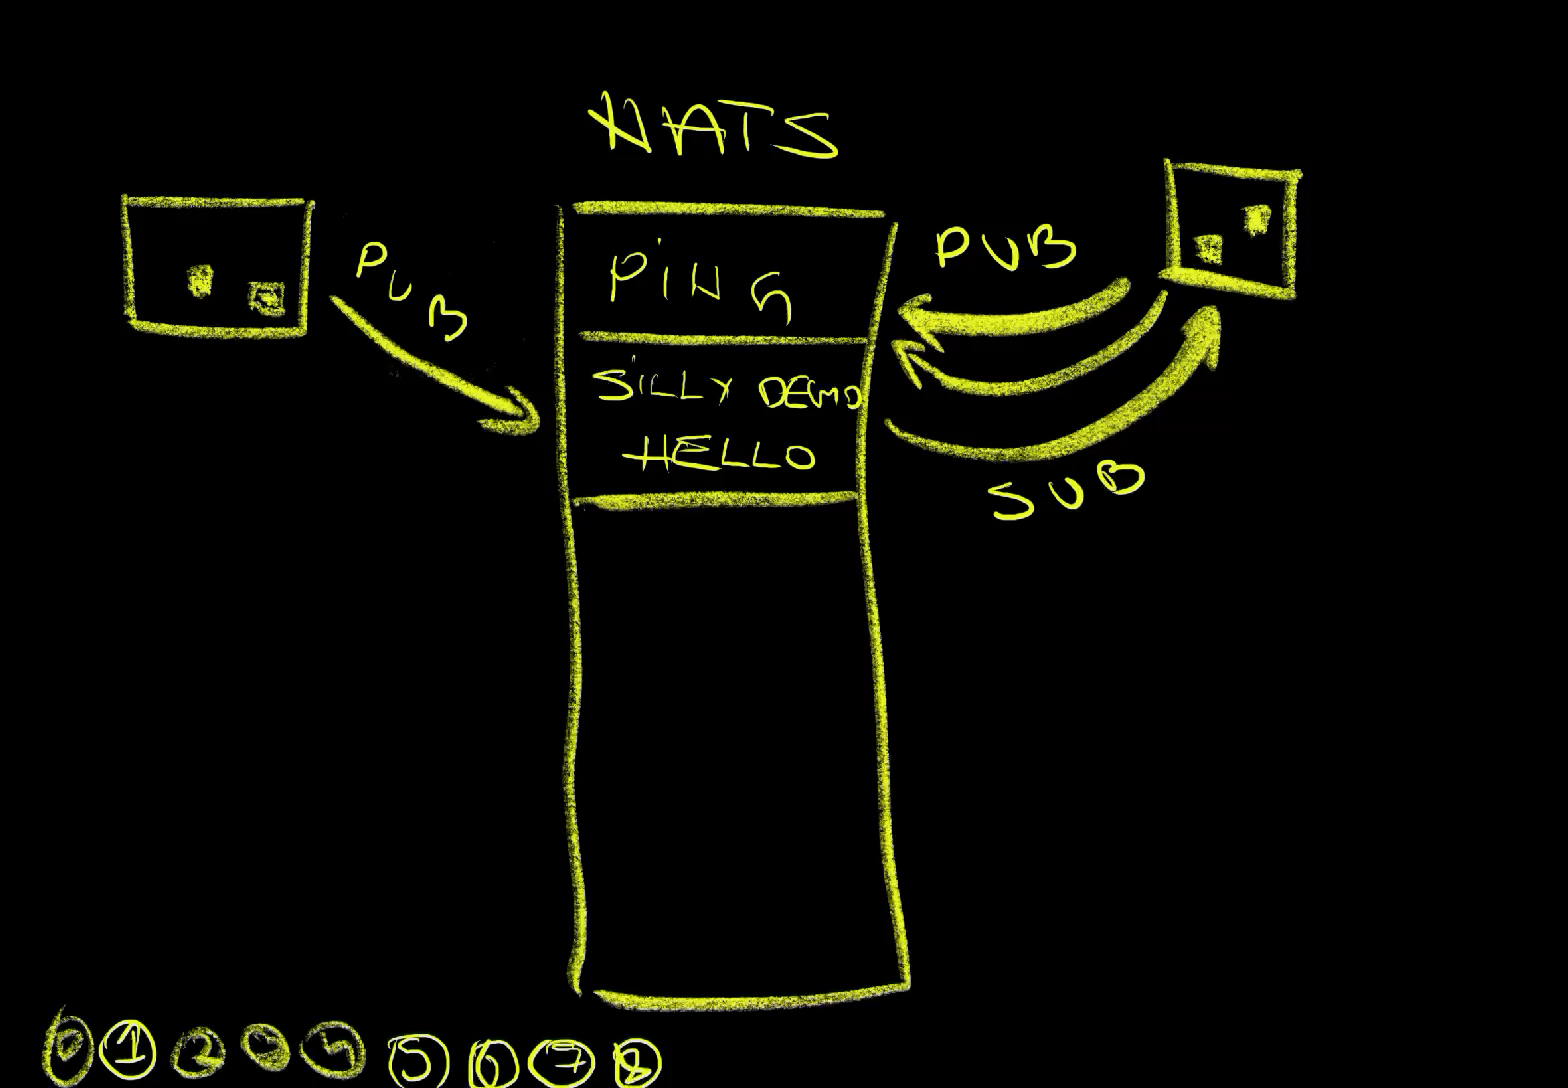 NATS
PUB
PING
PUB
SILLY DEMO
HELLO
SUB
0 1 2 3 4 5 6 7 8